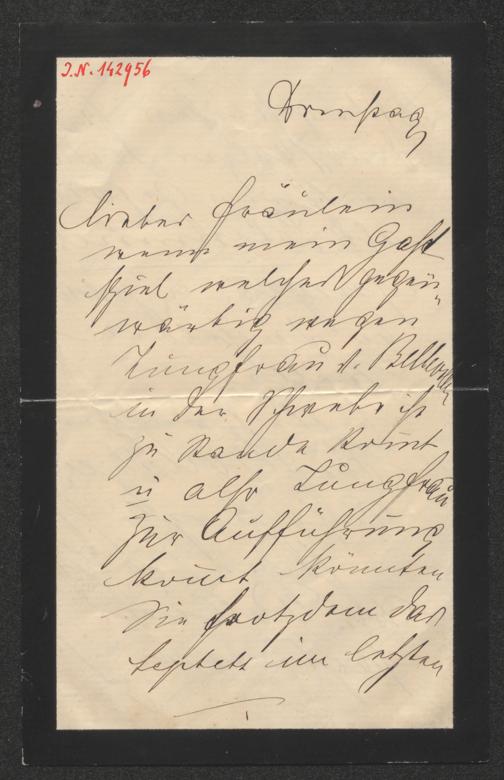 J.N. 142956
Dienstag
lieber Fräulein
wenn mein Gast
spiel welches gegen
wärtig wegen
Jungfrau v. Belleville
in der Schwebe ist
zu Stande kom̄t
u also Jungfrau
zur Aufführung
kom̄t könnten
Sie trotzdem das
Septett im letzten